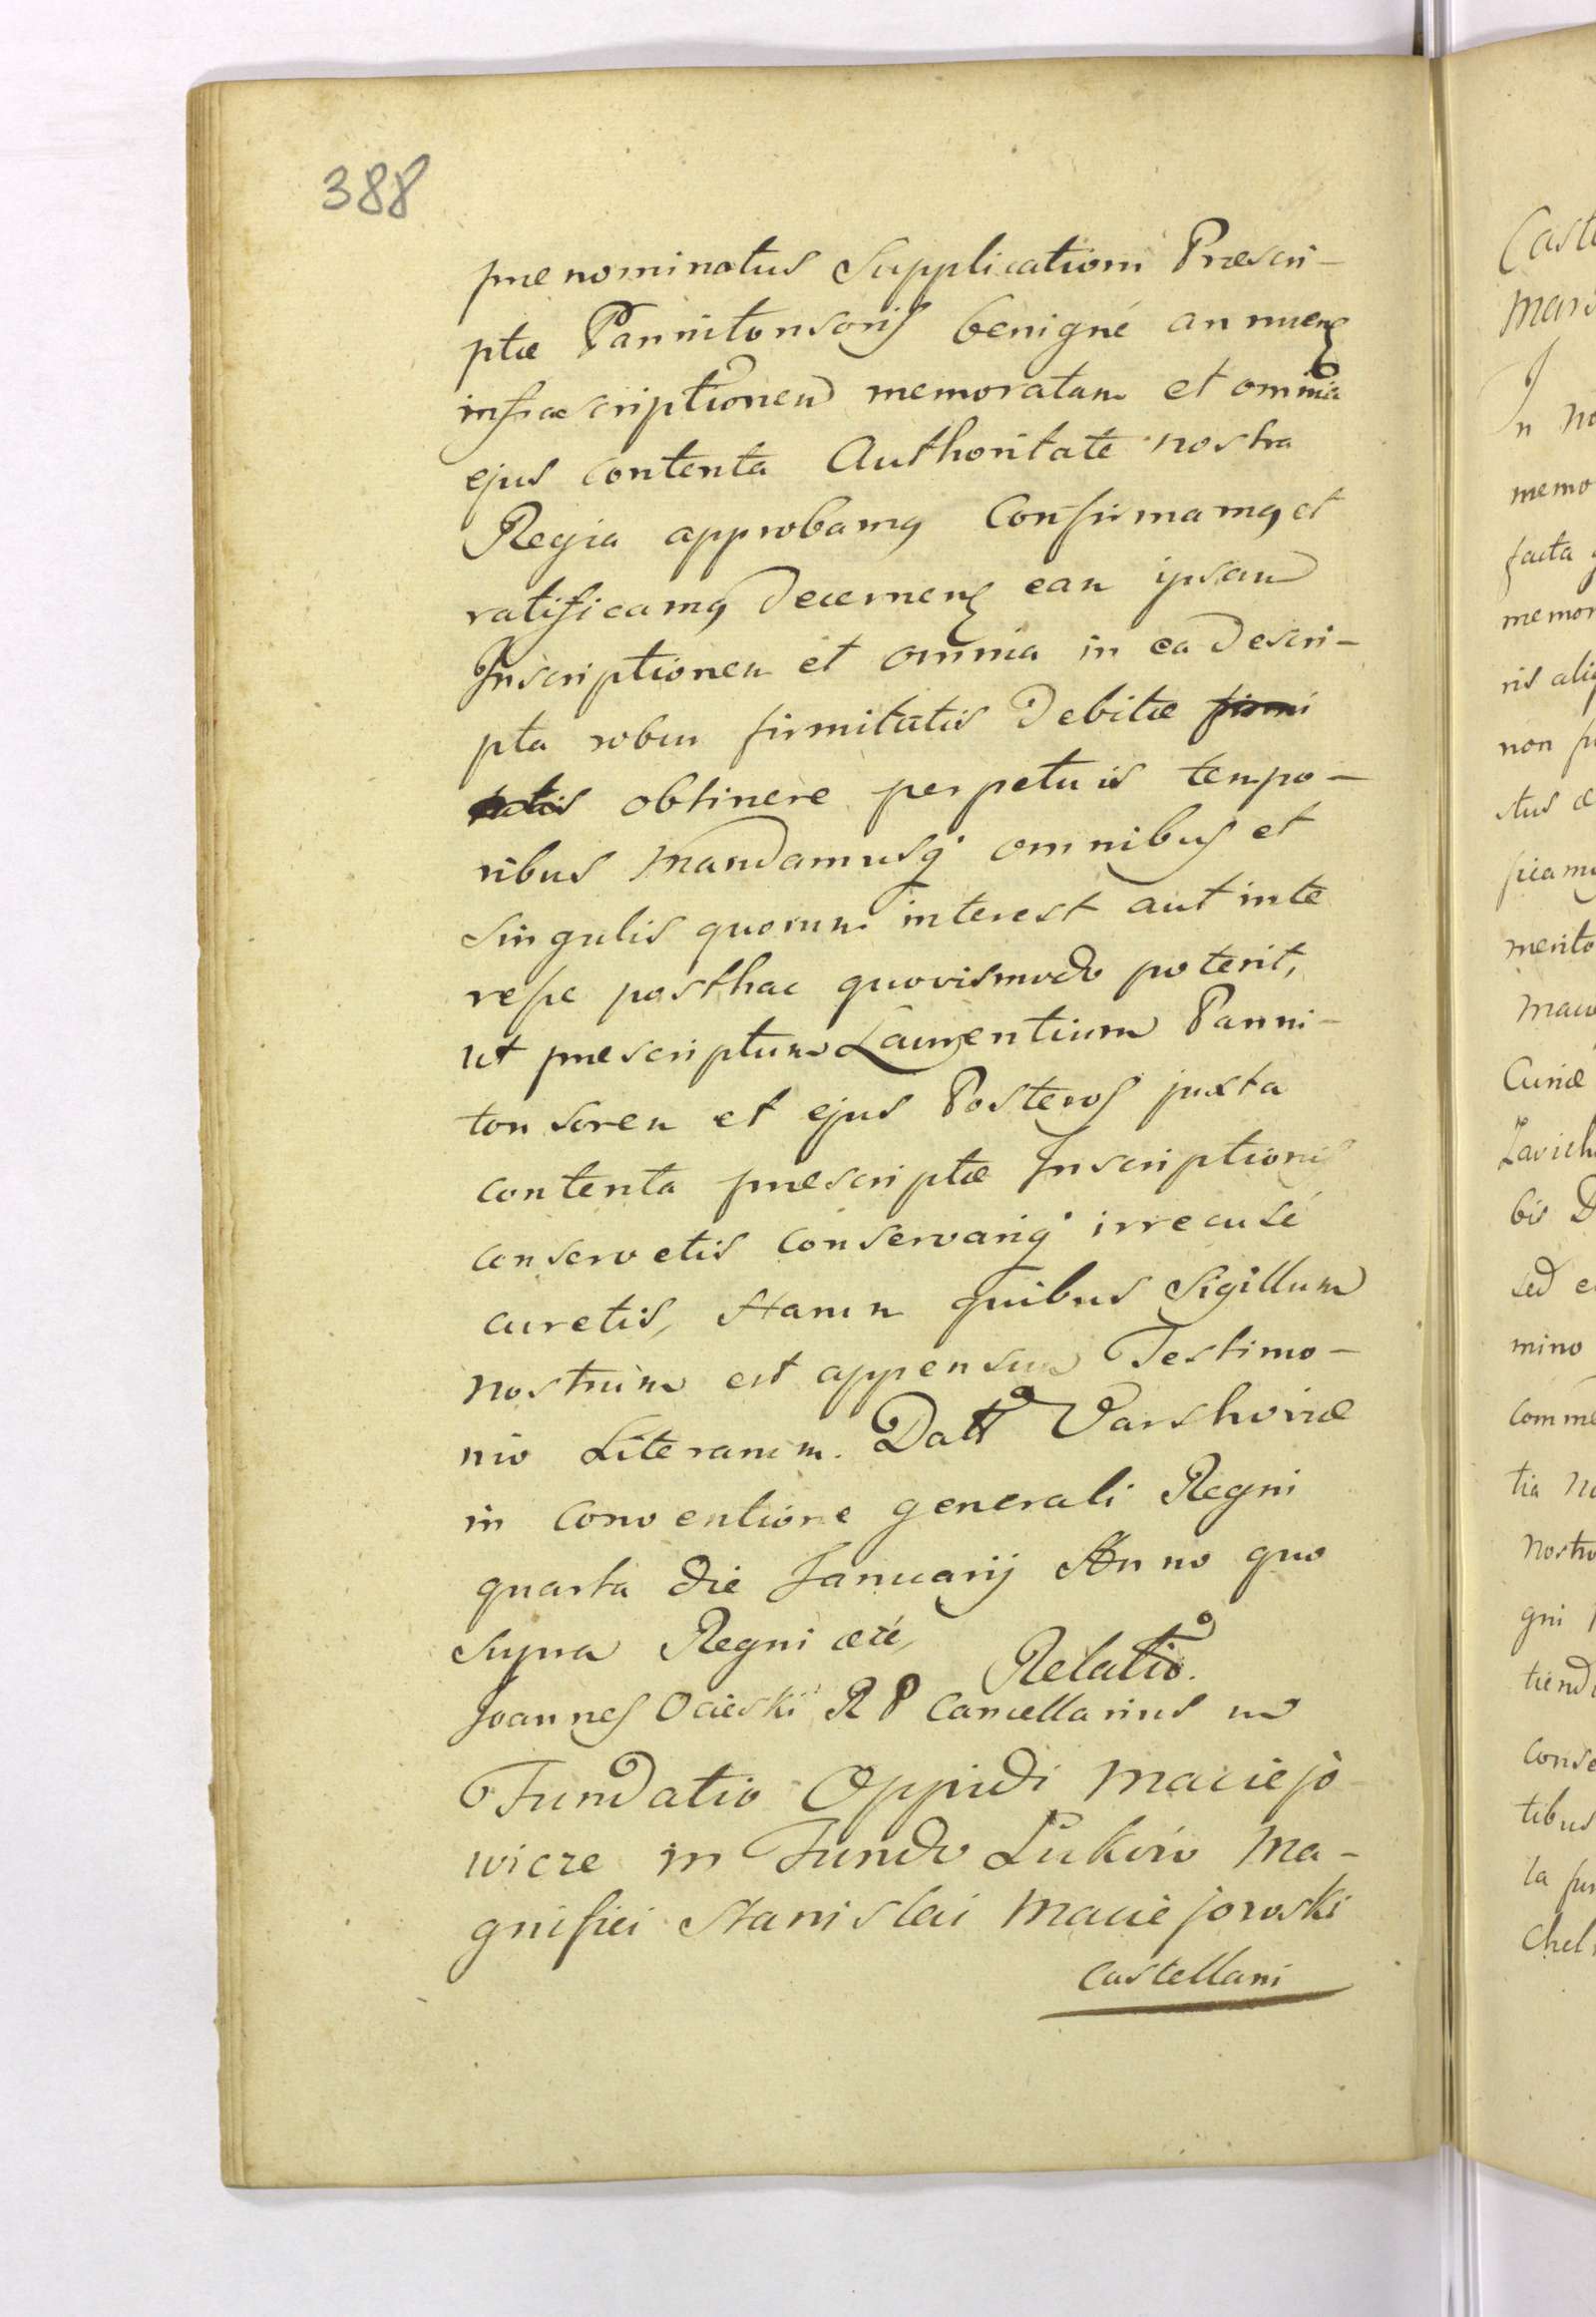 388
prænominatus Supplicationi Præscri-
ptæ Pannitonsoris benigné annuens
infrascriptionem memoratam et omnia
ejus contenta Authoritate nostra
Regia approbamq Confirmamq et
ratificamq Decernens eam ipsam
Inscriptionem et omnia in ea Descri-
pta robur firmitatis Debitæ firmi
tatis obtinere perpetuis tempo-
ribus Mandamusq omnibus et
Singulis quorum interest aut inte
resse posthac quovismodo poterit,
ut præscriptum Laurentium Panni-
tonsorem et ejus Posteros juxta
contenta præscriptæ Inscriptionis
conservetis conservariq irrecusé
curetis, Harum quibus Sigillum
nostrum est appensum Testimo-
nio Literarum. Datt Varshoviæ
in Conventione generali Regni
quarta Die Januarij Anno quo
Supra Regni etc
Relatio.
Joannes Ocieski R P Cancellarius mp
Fundatio Oppidi Maciejo
wicze in Fundo Lukow Ma-
gnifici Stanislai Maciejowski
Castellani
Caste
n no
memo
facta
memor
ris aliq
non fu
stus
ficamq
merito
Maci
Curiæ
Zavich
bis D
sed e
mino
Comme
tia No
Nostro
gni
tiendi
Conse
tibus
la
Chel